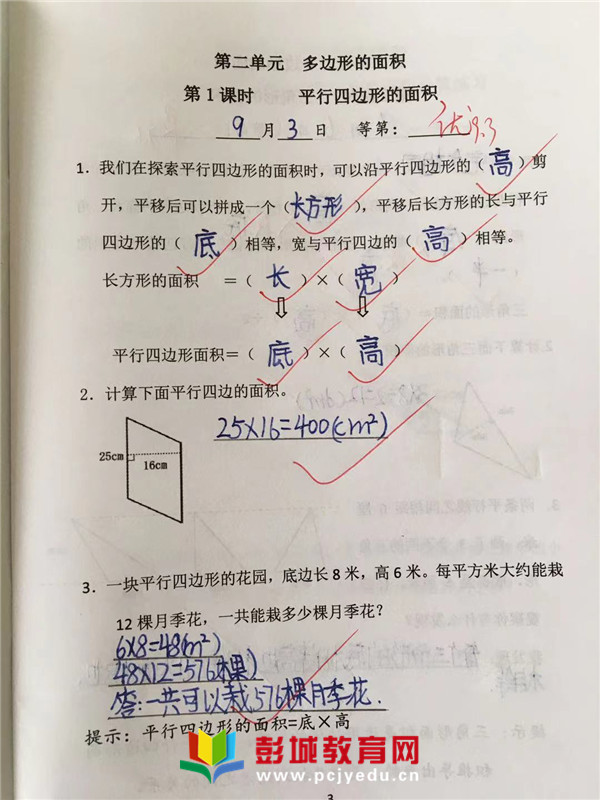 第二单元 多边形的面积
第1课时 平行四边形的面积
9月3日 等第：优 9.3
1. 我们在探索平行四边形的面积时，可以沿平行四边形的（高）剪
开，平移后可以拼成一个（长方形），平移后长方形的长与平行
四边形的（底）相等，宽与平行四边的（高）相等。
长方形的面积 ＝（长）×（宽）
平行四边形面积＝（底）×（高）
2. 计算下面平行四边的面积。
25×16=400(cm²)
25cm
16cm
3. 一块平行四边形的花园，底边长8米，高6米。每平方米大约能栽
12棵月季花，一共能栽多少棵月季花？
6×8=48(m²)
48×12=576(棵)
答:一共可以栽576棵月季花.
提示：平行四边形的面积=底×高
彭城教育网
www.pcjyedu.cn
3